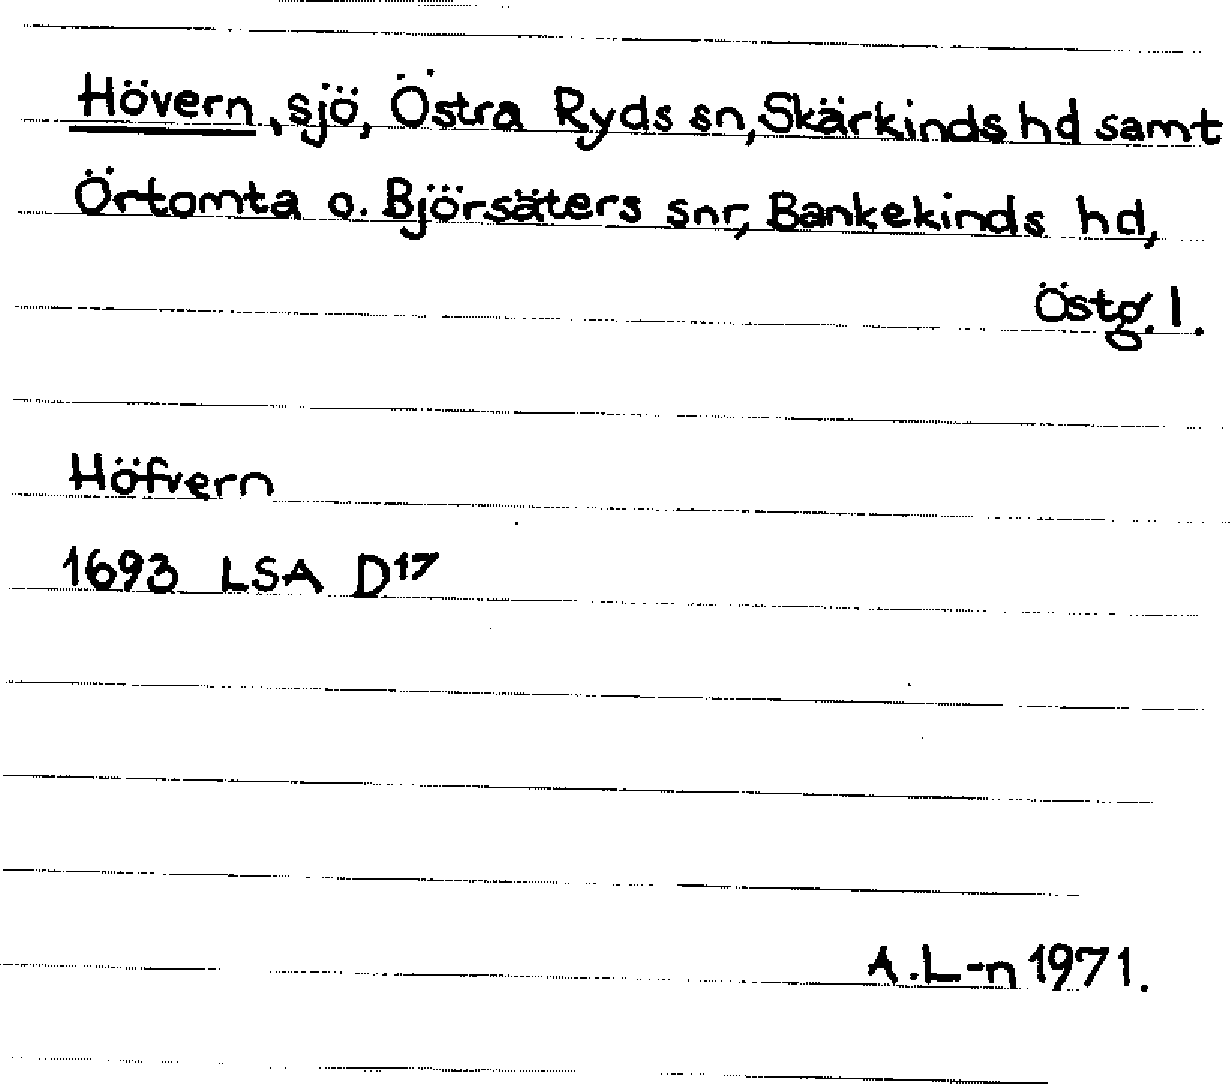 Hövern, sjö, Östra Ryds sn, Skärkinds hd samt
Örtomta o. Björsäters snr, Bankekinds hd,
Östg. l.
Höfvern
1693 LSA D17
A.L-n 1971.